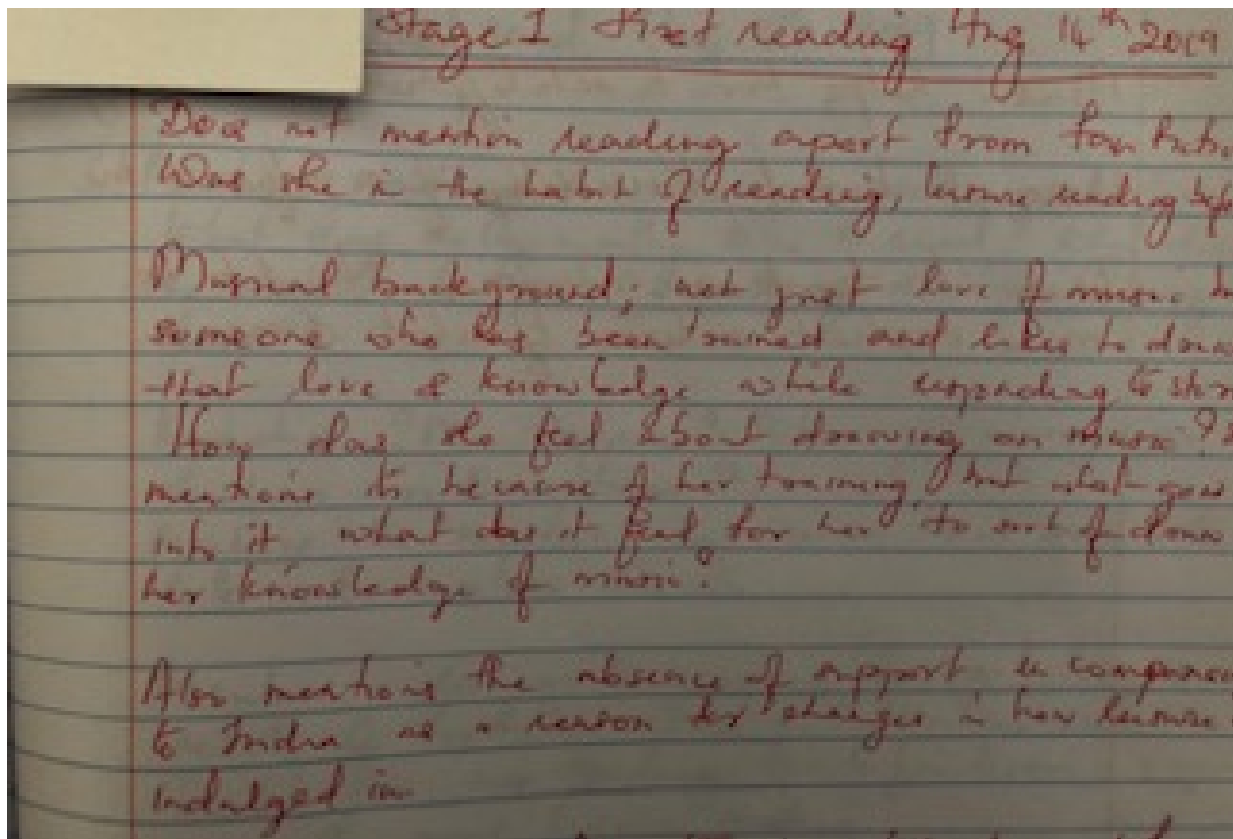 Stage 1 First reading Aug 14th 2019
Does not mention reading apart from
Was she in the habit of reading, leisure reading bef
Musical background; not just love of music b
someone who has been trained and likes to draw
that love & knowledge while responding to
How does she feel about drawing on music?
mentions its because of her training but what goes
into it what does it feel for her to sort of draw
her knowledge of music?
Also mentions the absence of support in comparison
to India as a reason for changes in how leisure
indulged in